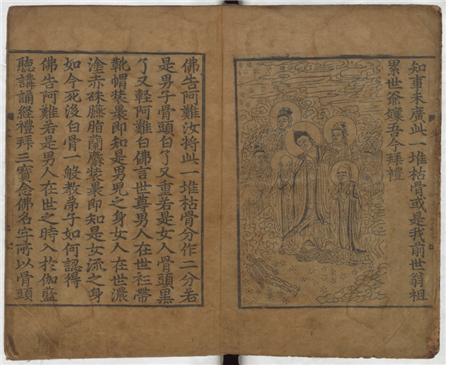 知重未廣此一堆枯骨或是我前世翁祖
累世爺孃吾今拜禮
佛告阿難汝將此一堆枯骨分作二分若
是男子骨頭白了又重若是女人骨頭黑
了又輕阿難白佛言世尊男人在世衫帶
靴帽裝裹即知是男兒之身女人在世濃
塗赤硃臙脂蘭麝裝裹即知是女流之身
如今死後白骨一般教弟子如何認得
佛告阿難若是男人在世之時入於伽藍
聽講誦經禮拜三寶念佛名字所以骨頭